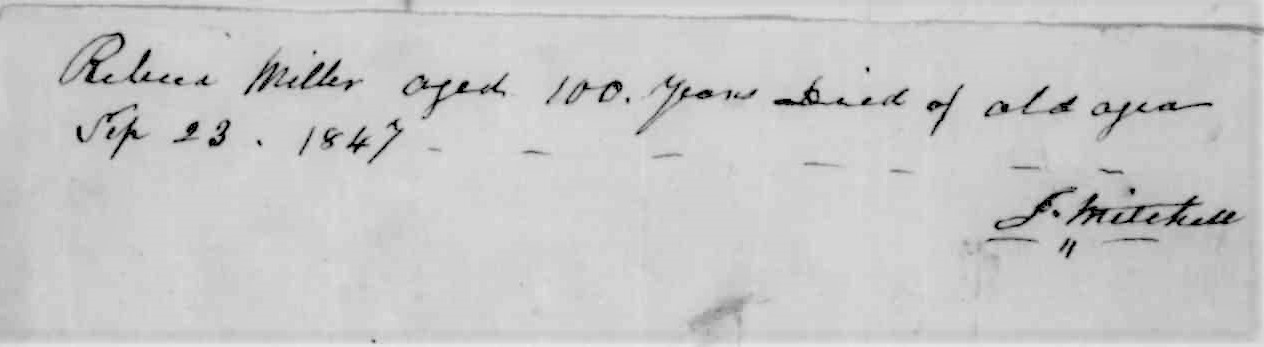 Rebecca Miller aged 100. Years Died of old age
Sep 23. 1847 - - - - - - -
J. Mitchell
- " -